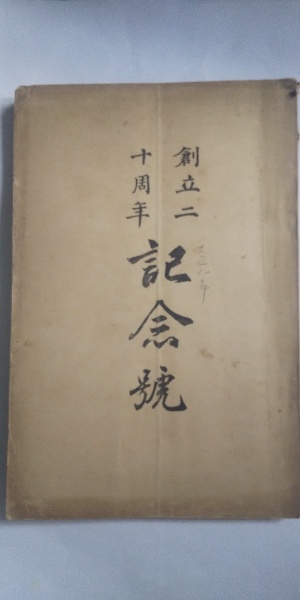 創立二
十周年
記念號
大正八年